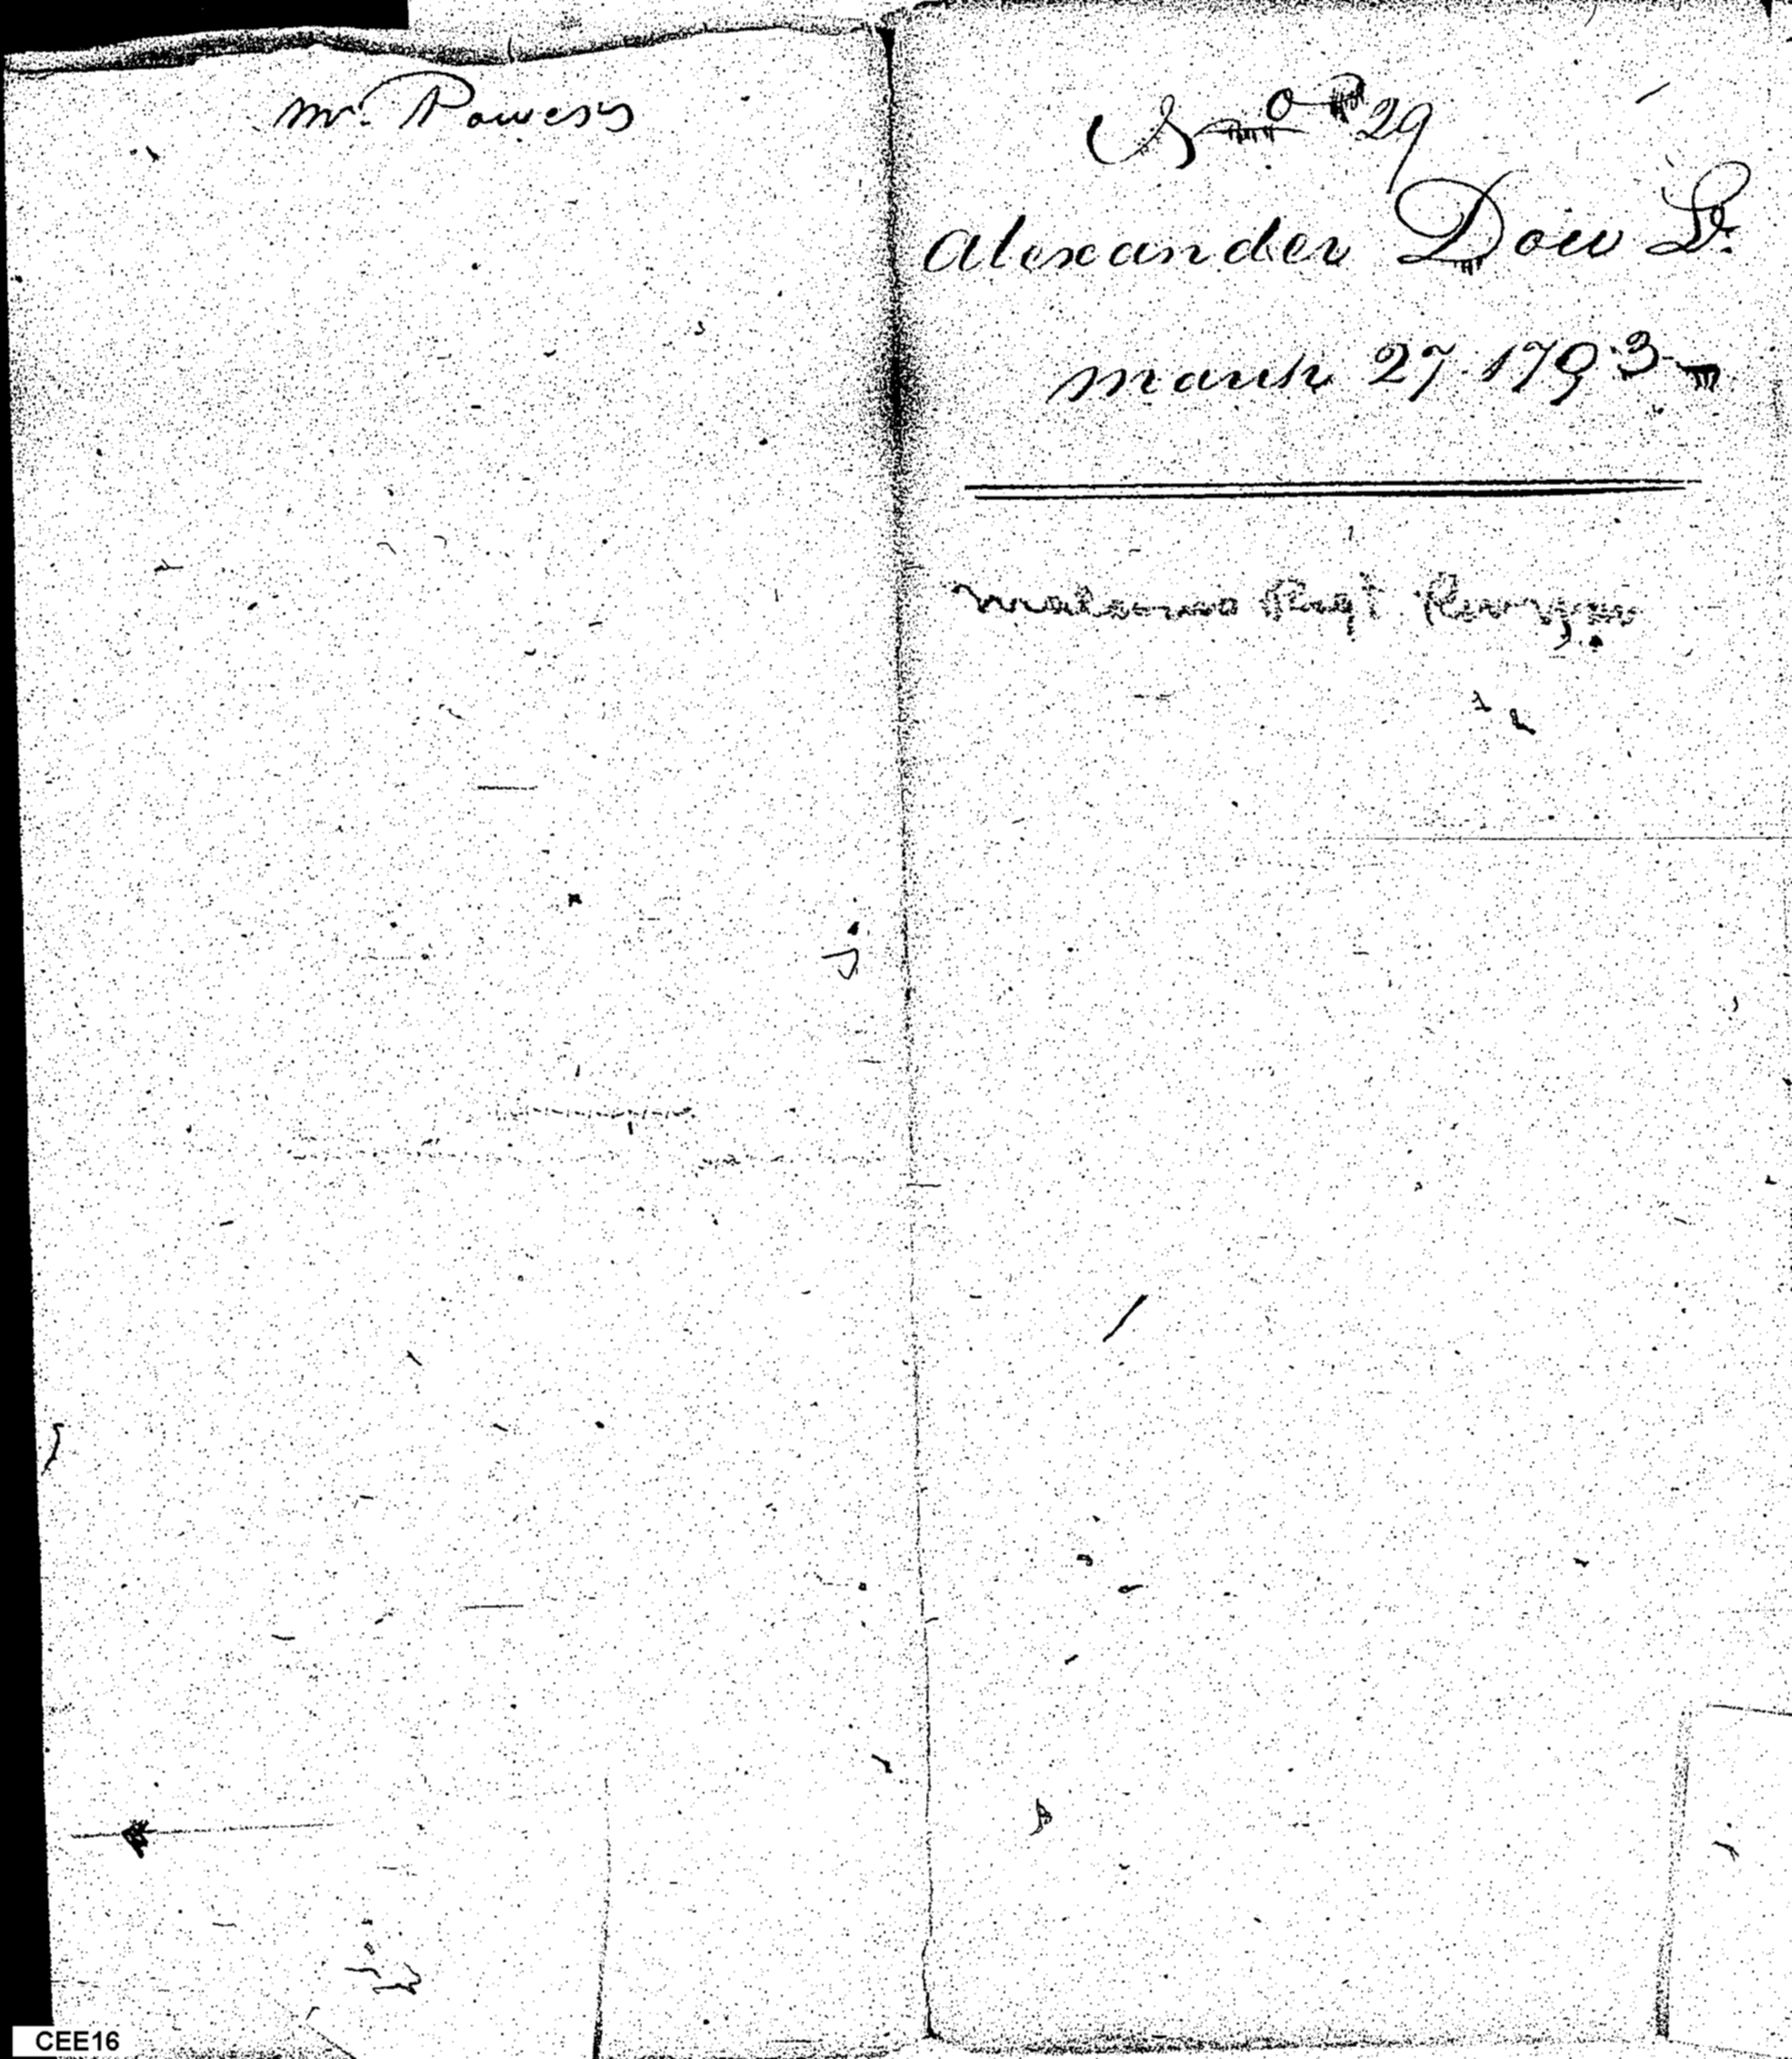 Mr. Powers
No 29
Alexander Dow Lt.
March 27. 1793
Malcolm's Regt
CEE16